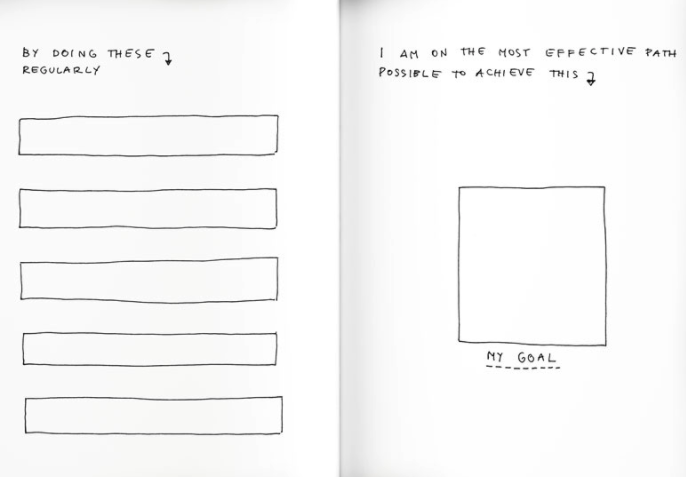 BY DOING THESE
REGULARLY
I AM ON THE MOST EFFECTIVE PATH
POSSIBLE TO ACHIEVE THIS
MY GOAL